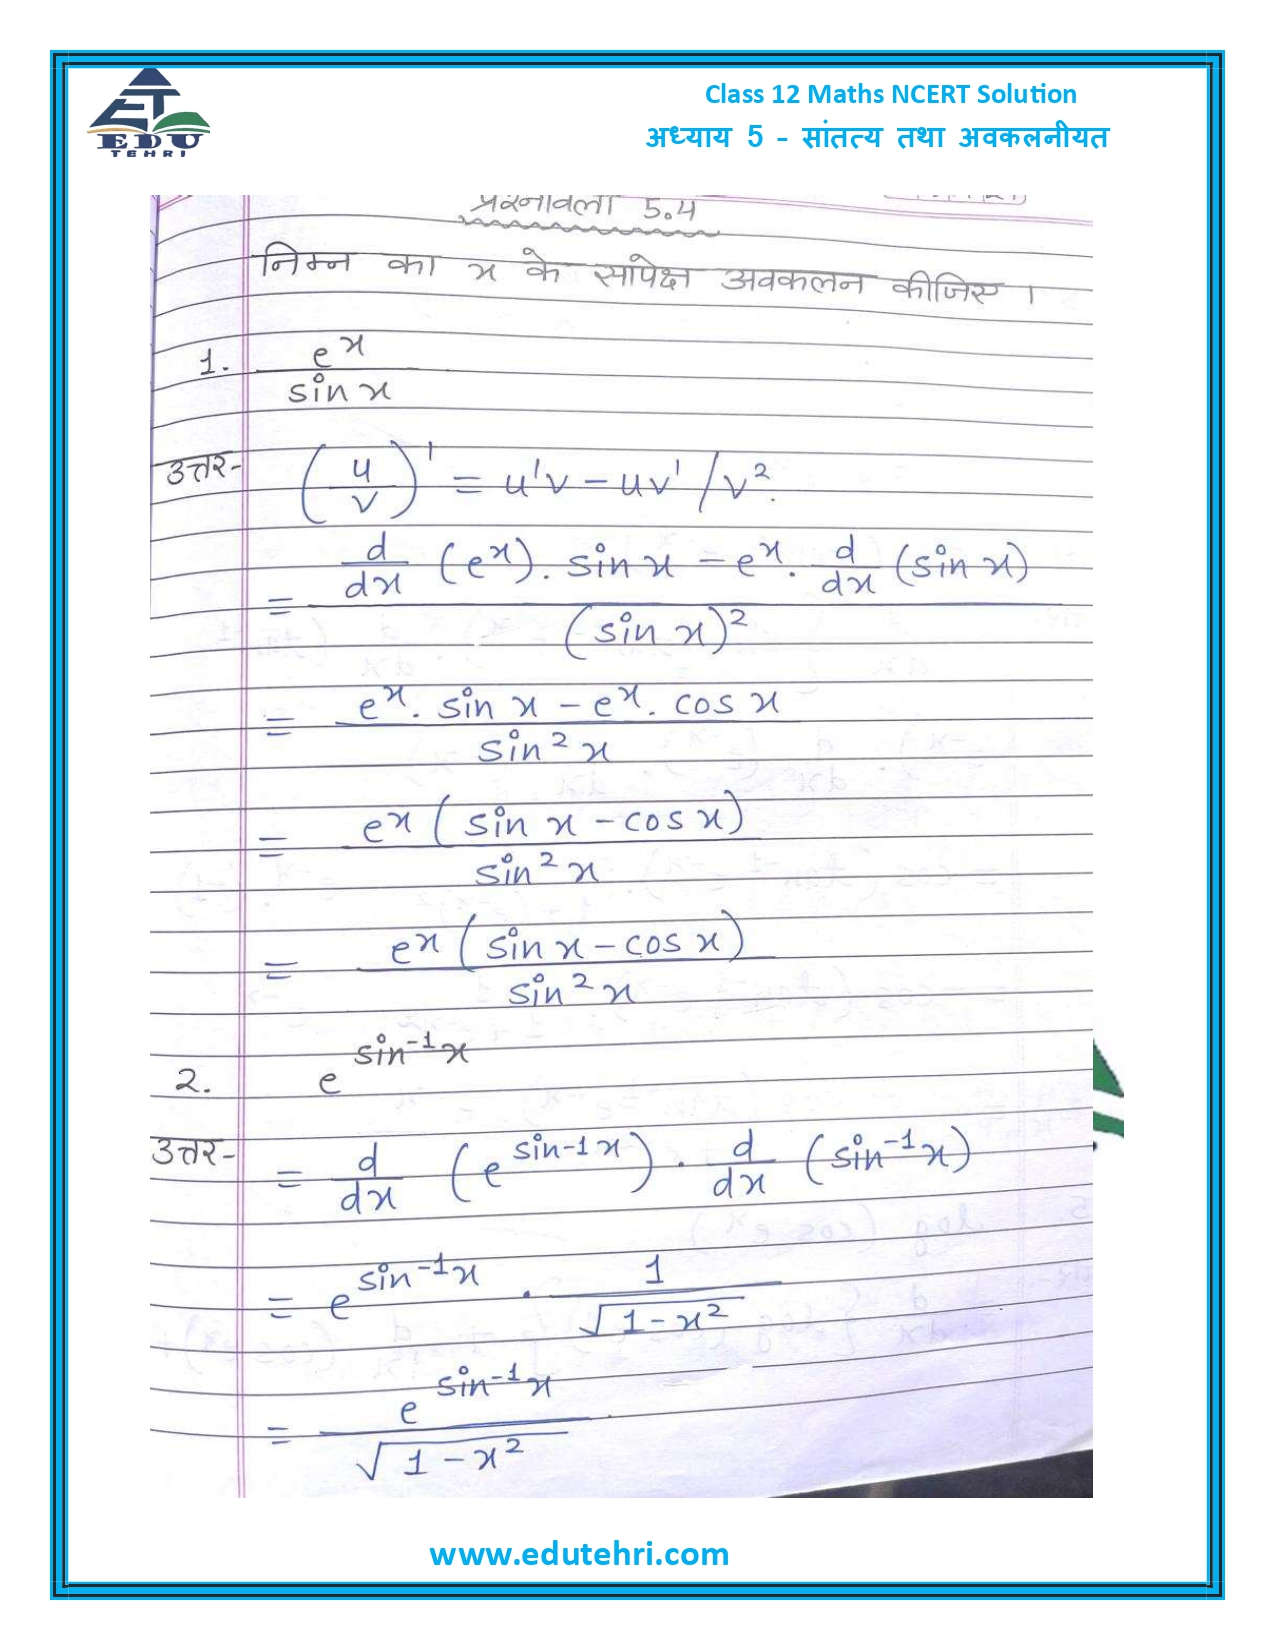 EDU
TEHRI
Class 12 Maths NCERT Solution
अध्याय 5 - सांतत्य तथा अवकलनीयत
प्रश्नावली 5.4
निम्न का x के सापेक्ष अवकलन कीजिए ।
1. e^x / sin x
उत्तर- (u/v)' = u'v - uv' / v².
= d/dx (e^x). sin x - e^x. d/dx (sin x) / (sin x)²
= e^x. sin x - e^x. cos x / sin² x
= e^x (sin x - cos x) / sin² x
= e^x (sin x - cos x) / sin² x
2. e^sin⁻¹x
उत्तर- = d/dx (e^sin-1x) . d/dx (sin⁻¹x)
= e^sin⁻¹x . 1 / √1-x²
= e^sin⁻¹x / √1-x²
www.edutehri.com